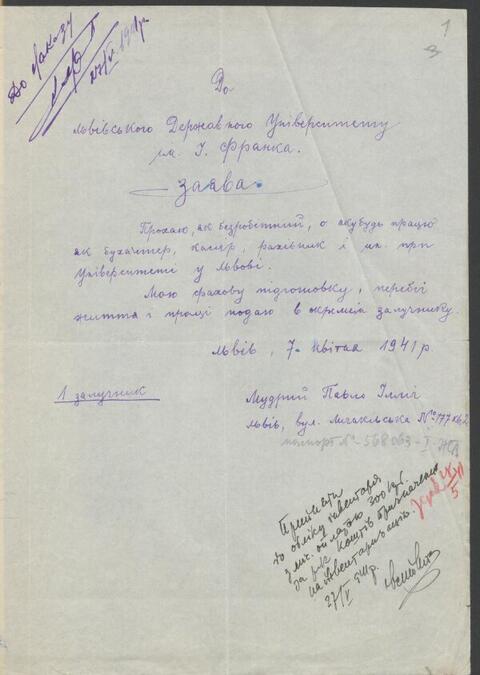 1
3
До наказу
27/V 1941р.
До
Львівського Державного Університету
ім. І. Франка.
Заява.
Прохаю, як безробітний, о якубудь працю
як бухгалтер, касяр, рахівник і ин. при
Університеті у Львові.
Мою фахову підготовку, перебіг
життя і праці подаю в окремім залучнику.
Львів, 7. квітня 1941 р.
1 залучник
Мудрий Павло Ілліч
Львів, вул. Личаківська № 177 кв. 2
паспорт № 568063-І
Прийняти
до обліку інвентаря
з міс. оплатою 300 крб.
за рах. коштів призначених
на інвентаризацію.
27/V 941р.